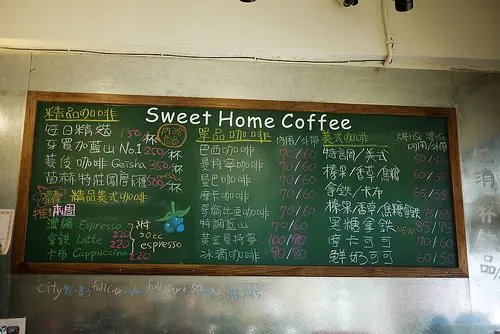 Sweet Home Coffee
精品咖啡
每日精選 150/杯
牙買加藍山 No.1 200/杯
藝伎咖啡 Geisha 350/杯
精品義式咖啡
濃縮 Espresso 220
拿鐵 Latte 220
卡布 Cappuccino 220
附
20cc
espresso
單品咖啡 內用/外帶
巴西咖啡 70/60
曼特寧咖啡 70/60
曼巴咖啡 70/60
摩卡咖啡 70/60
哥倫比亞咖啡 70/60
特調藍山 70/60
黃金曼特寧 100/90
冰滴咖啡 90/80
義式咖啡
內用/外帶
特調/美式 50/40
榛果/香草/焦糖 60/50
拿鐵/卡布 65/55
榛果/香草/焦糖拿鐵 75/65
黑糖拿鐵 NEW 85/75
摩卡可可 70/60
鮮奶可可 60/50
City
Full City